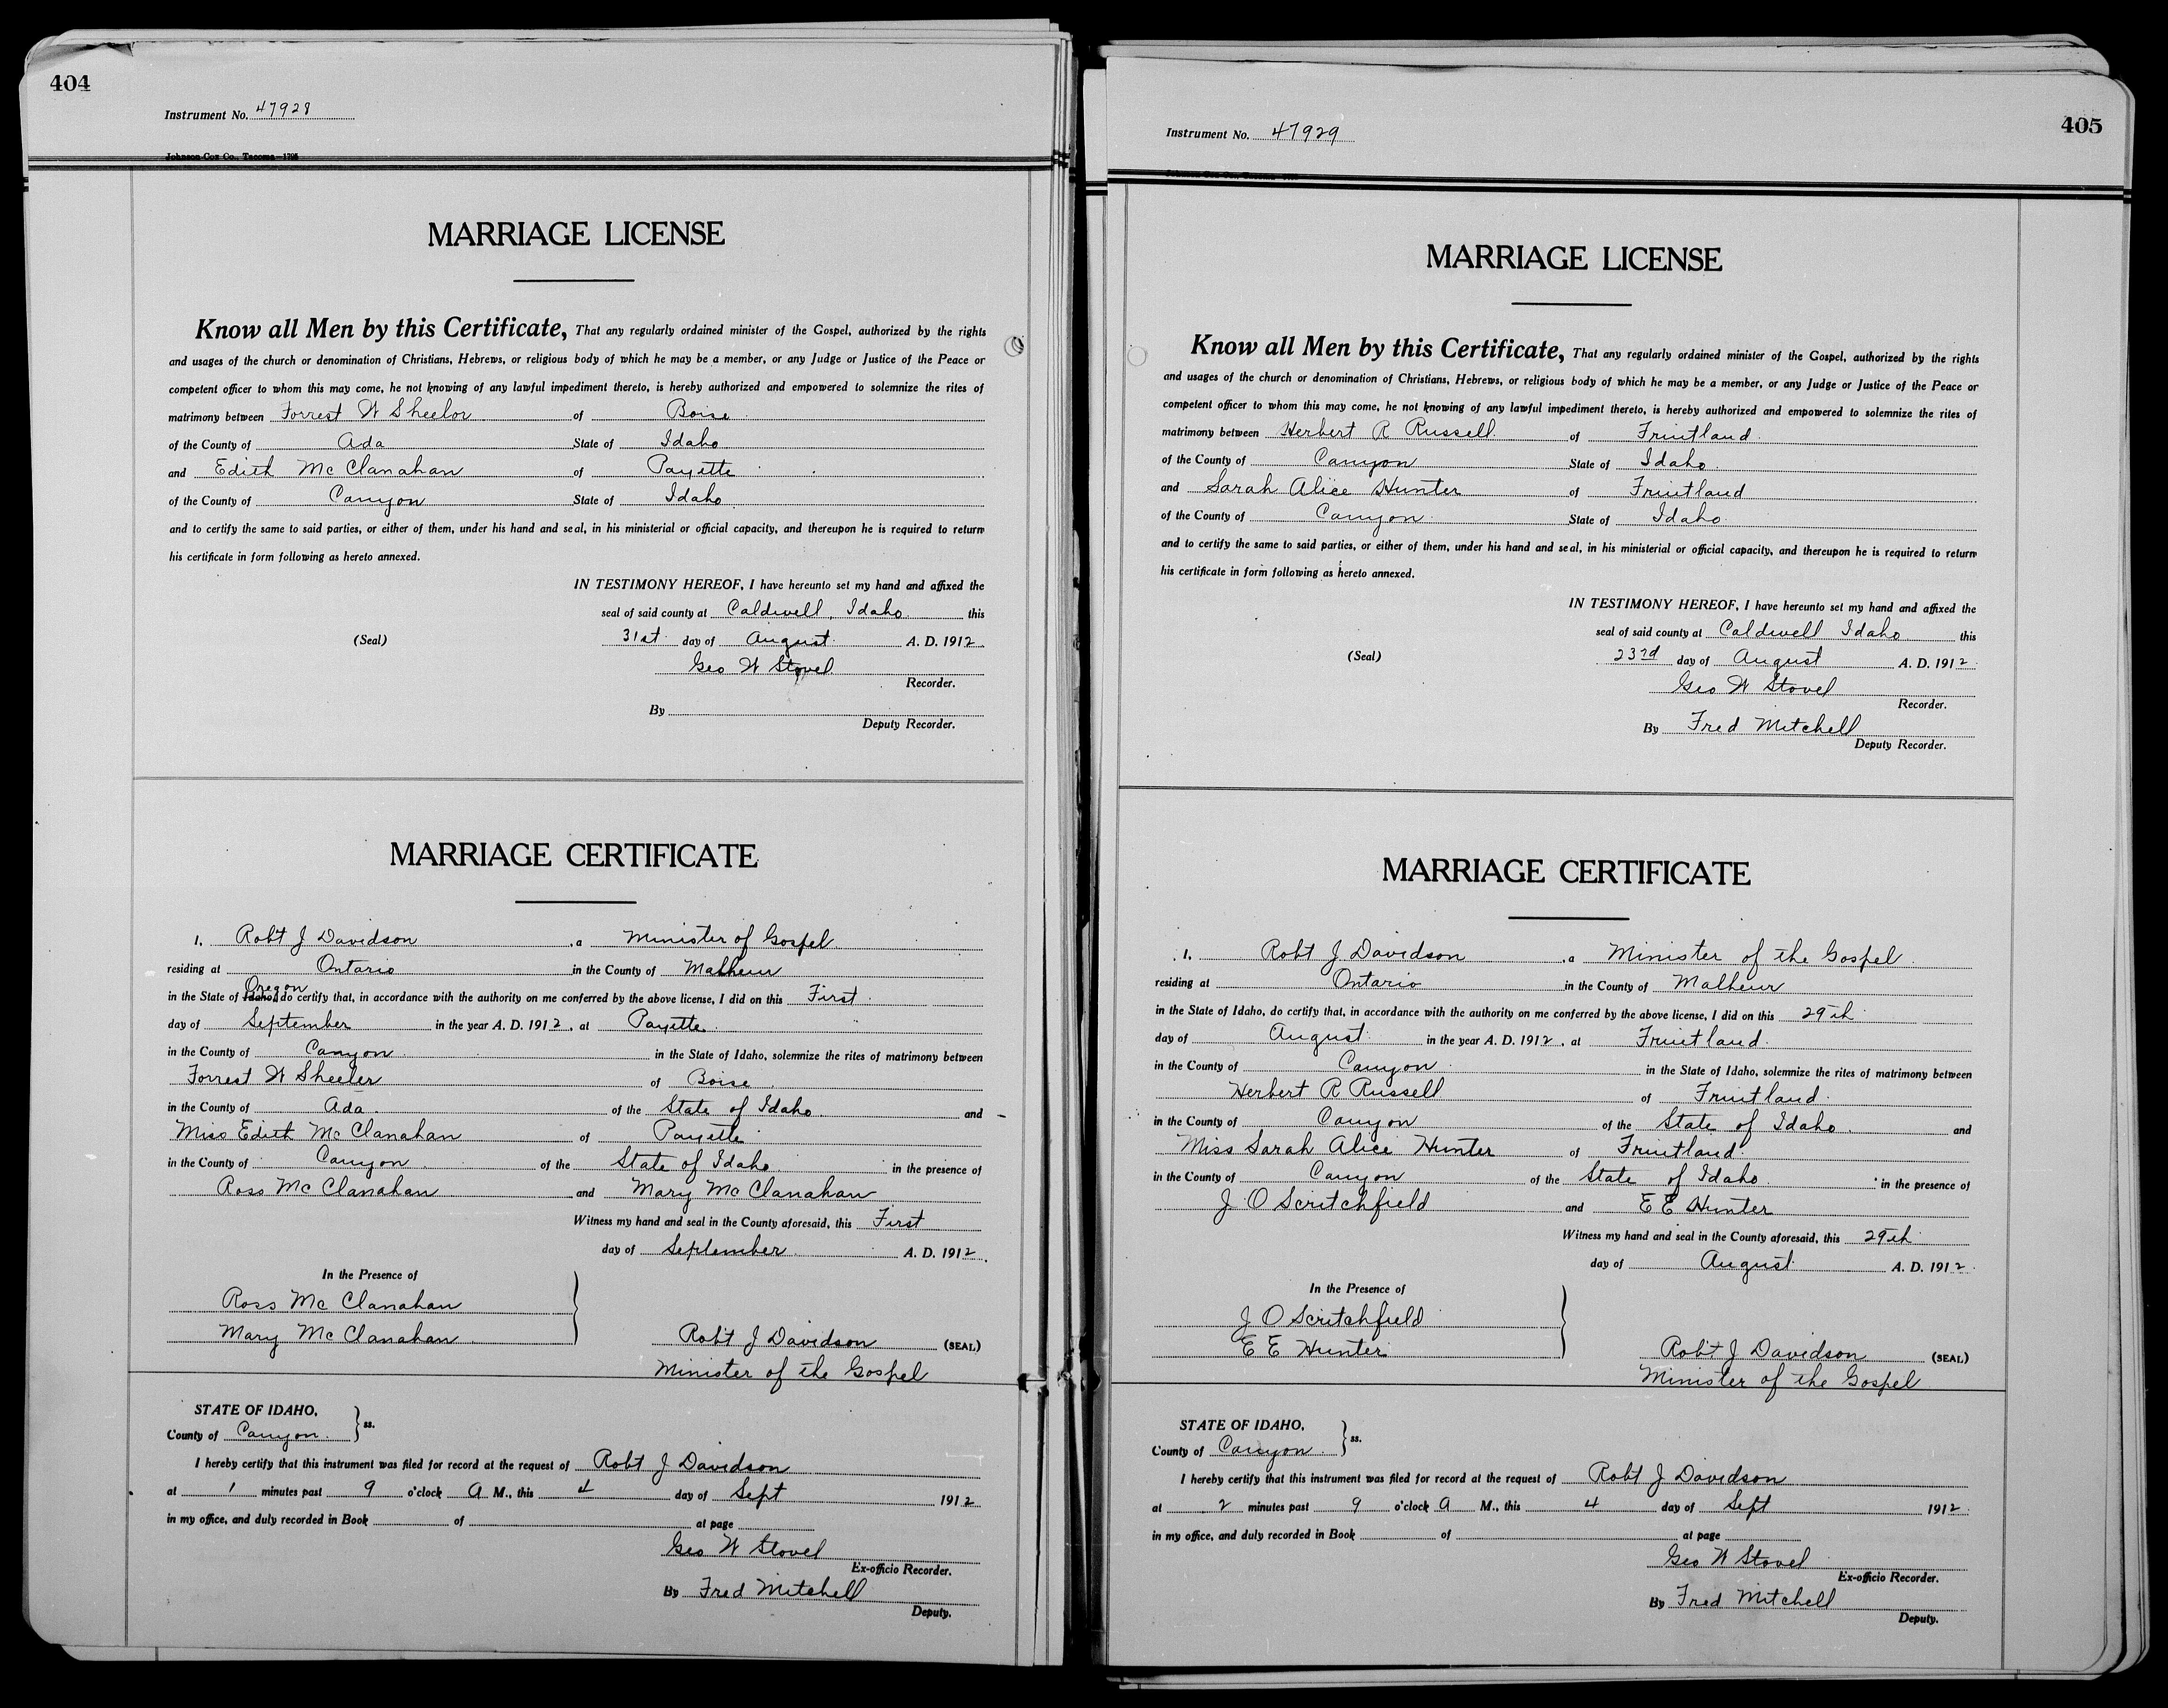 404
Instrument No. 47928
Johnson-Cox Co., Tacoma—1795
MARRIAGE LICENSE
Know all Men by this Certificate, That any regularly ordained minister of the Gospel, authorized by the rights
and usages of the church or denomination of Christians, Hebrews, or religious body of which he may be a member, or any Judge or Justice of the Peace or
competent officer to whom this may come, he not knowing of any lawful impediment thereto, is hereby authorized and empowered to solemnize the rites of
matrimony between Forrest W Sheelor of Boise
of the County of Ada State of Idaho
and Edith Mc Clanahan of Payette
of the County of Canyon State of Idaho
and to certify the same to said parties, or either of them, under his hand and seal, in his ministerial or official capacity, and thereupon he is required to return
his certificate in form following as hereto annexed.
IN TESTIMONY HEREOF, I have hereunto set my hand and affixed the
seal of said county at Caldwell, Idaho this
(Seal) 31st day of August A. D. 1912.
Geo W Stovel
Recorder.
By
Deputy Recorder.
MARRIAGE CERTIFICATE
I, Robt J Davidson, a Minister of Gospel
residing at Ontario in the County of Malheur
Oregon
in the State of Idaho, do certify that, in accordance with the authority on me conferred by the above license, I did on this First
day of September in the year A. D. 1912, at Payette
in the County of Canyon in the State of Idaho, solemnize the rites of matrimony between
Forrest W Sheeler of Boise
in the County of Ada of the State of Idaho and
Miss Edith Mc Clanahan of Payette
in the County of Canyon of the State of Idaho in the presence of
Ross Mc Clanahan and Mary Mc Clanahan
Witness my hand and seal in the County aforesaid, this First
day of September A. D. 1912.
In the Presence of
Ross Mc Clanahan
Mary Mc Clanahan
Robt J Davidson (SEAL)
Minister of the Gospel
STATE OF IDAHO,
County of Canyon } ss.
I hereby certify that this instrument was filed for record at the request of Robt J Davidson
at 1 minutes past 9 o'clock A M., this 4 day of Sept 1912
in my office, and duly recorded in Book of at page
Geo W Stovel
Ex-officio Recorder.
By Fred Mitchell
Deputy.
405
Instrument No. 47929
MARRIAGE LICENSE
Know all Men by this Certificate, That any regularly ordained minister of the Gospel, authorized by the rights
and usages of the church or denomination of Christians, Hebrews, or religious body of which he may be a member, or any Judge or Justice of the Peace or
competent officer to whom this may come, he not knowing of any lawful impediment thereto, is hereby authorized and empowered to solemnize the rites of
matrimony between Herbert R Russell of Fruitland
of the County of Canyon State of Idaho
and Sarah Alice Hunter of Fruitland
of the County of Canyon State of Idaho
and to certify the same to said parties, or either of them, under his hand and seal, in his ministerial or official capacity, and thereupon he is required to return
his certificate in form following as hereto annexed.
IN TESTIMONY HEREOF, I have hereunto set my hand and affixed the
seal of said county at Caldwell Idaho this
(Seal) 23rd day of August A. D. 1912.
Geo W Stovel
Recorder.
By Fred Mitchell
Deputy Recorder.
MARRIAGE CERTIFICATE
I, Robt J Davidson, a Minister of the Gospel
residing at Ontario in the County of Malheur
in the State of Idaho, do certify that, in accordance with the authority on me conferred by the above license, I did on this 29th
day of August in the year A. D. 1912, at Fruitland
in the County of Canyon in the State of Idaho, solemnize the rites of matrimony between
Herbert R Russell of Fruitland
in the County of Canyon of the State of Idaho and
Miss Sarah Alice Hunter of Fruitland
in the County of Canyon of the State of Idaho in the presence of
J O Scritchfield and E E Hunter
Witness my hand and seal in the County aforesaid, this 29th
day of August A. D. 1912.
In the Presence of
J O Scritchfield
E E Hunter
Robt J Davidson (SEAL)
Minister of the Gospel
STATE OF IDAHO,
County of Canyon } ss.
I hereby certify that this instrument was filed for record at the request of Robt J Davidson
at 2 minutes past 9 o'clock A M., this 4 day of Sept 1912.
in my office, and duly recorded in Book of at page
Geo W Stovel
Ex-officio Recorder.
By Fred Mitchell
Deputy.